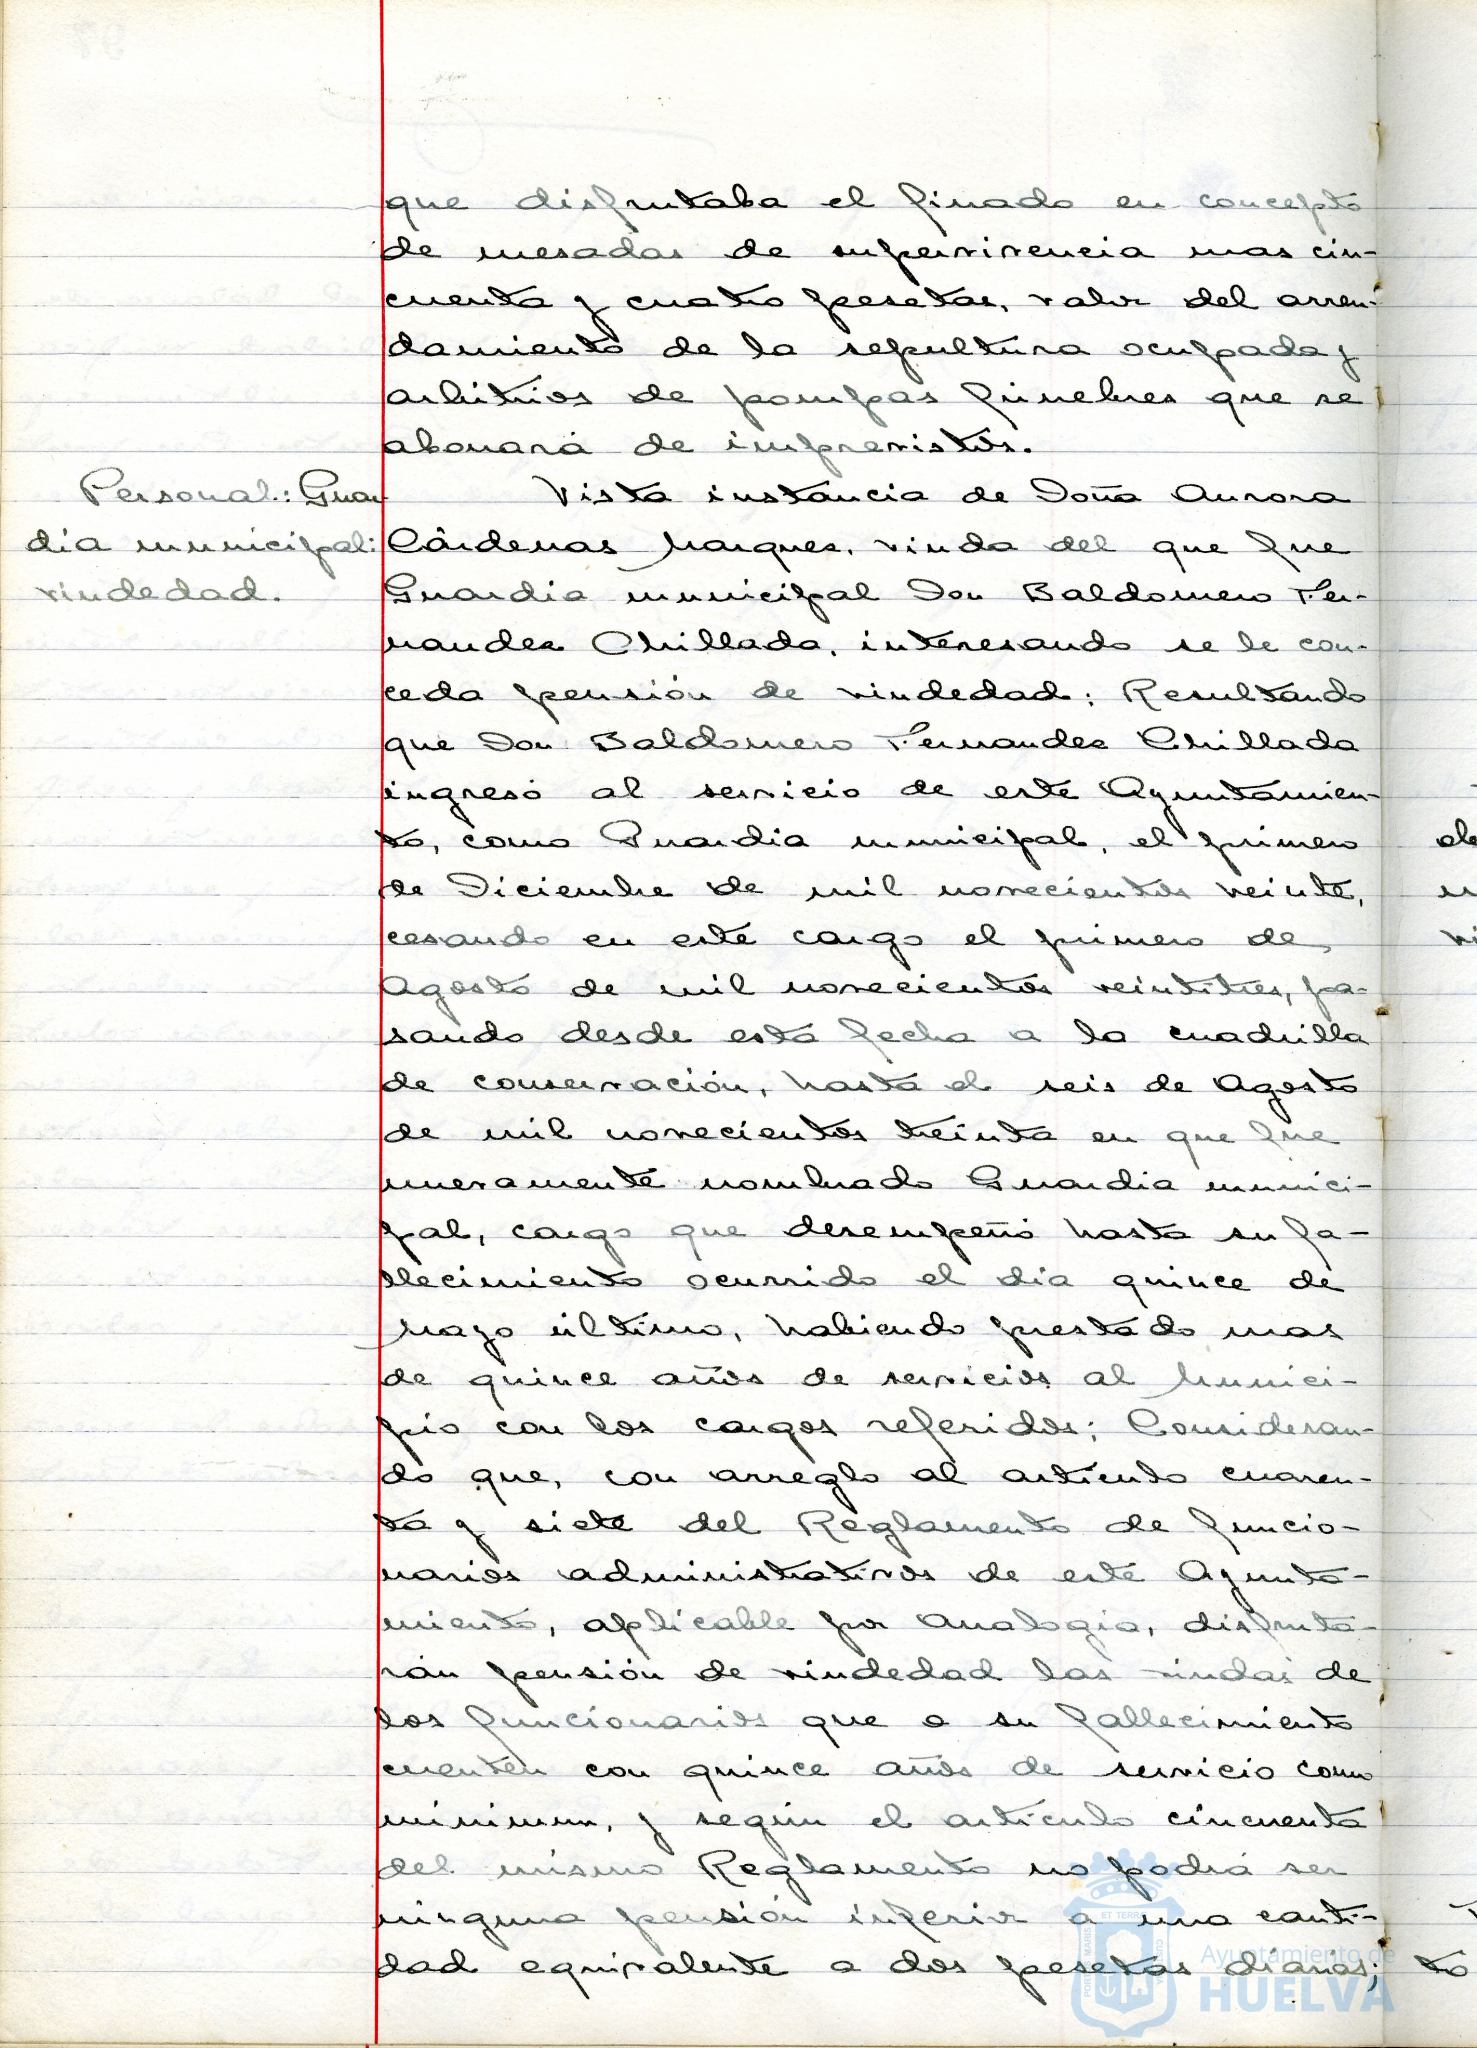 que disfrutaba el finado en concepto
de mesadas de supervivencia mas cin-
cuenta y cuatro pesetas, valor del arren-
damiento de la sepultura ocupada y
arbitrios de pompas fúnebres que se
abonará de imprevistos.
Personal: Guar
dia municipal:
viudedad.
Vista instancia de Doña Aurora
Cárdenas Marques, viuda del que fue
Guardia municipal Don Baldomero Fer-
nandez Chillada, interesando se le con-
ceda pensión de viudedad; Resultando
que Don Baldomero Fernandez Chillada
ingresó al servicio de este Ayuntamien-
to, como Guardia municipal, el primero
de Diciembre de mil novecientos veinte,
cesando en este cargo el primero de
Agosto de mil novecientos veintitres, pa-
sando desde esta fecha a la cuadrilla
de conservación, hasta el seis de Agosto
de mil novecientos treinta en que fue
nuevamente nombrado Guardia munici-
pal, cargo que desempeñó hasta su fa-
llecimiento ocurrido el día quince de
Mayo último, habiendo prestado mas
de quince años de servicios al Munici-
pio con los cargos referidos; Consideran-
do que, con arreglo al artículo cuaren-
ta y siete del Reglamento de funcio-
narios administrativos de este Ayunta-
miento, aplicable por analogía, disfruta-
rán pensión de viudedad las viudas de
los funcionarios que a su fallecimiento
cuenten con quince años de servicio como
minimun, y según el artículo cincuenta
del mismo Reglamento no podrá ser
ninguna pensión inferior a una canti-
dad equivalente a dos pesetas diarias;
Ayuntamiento de
HUELVA